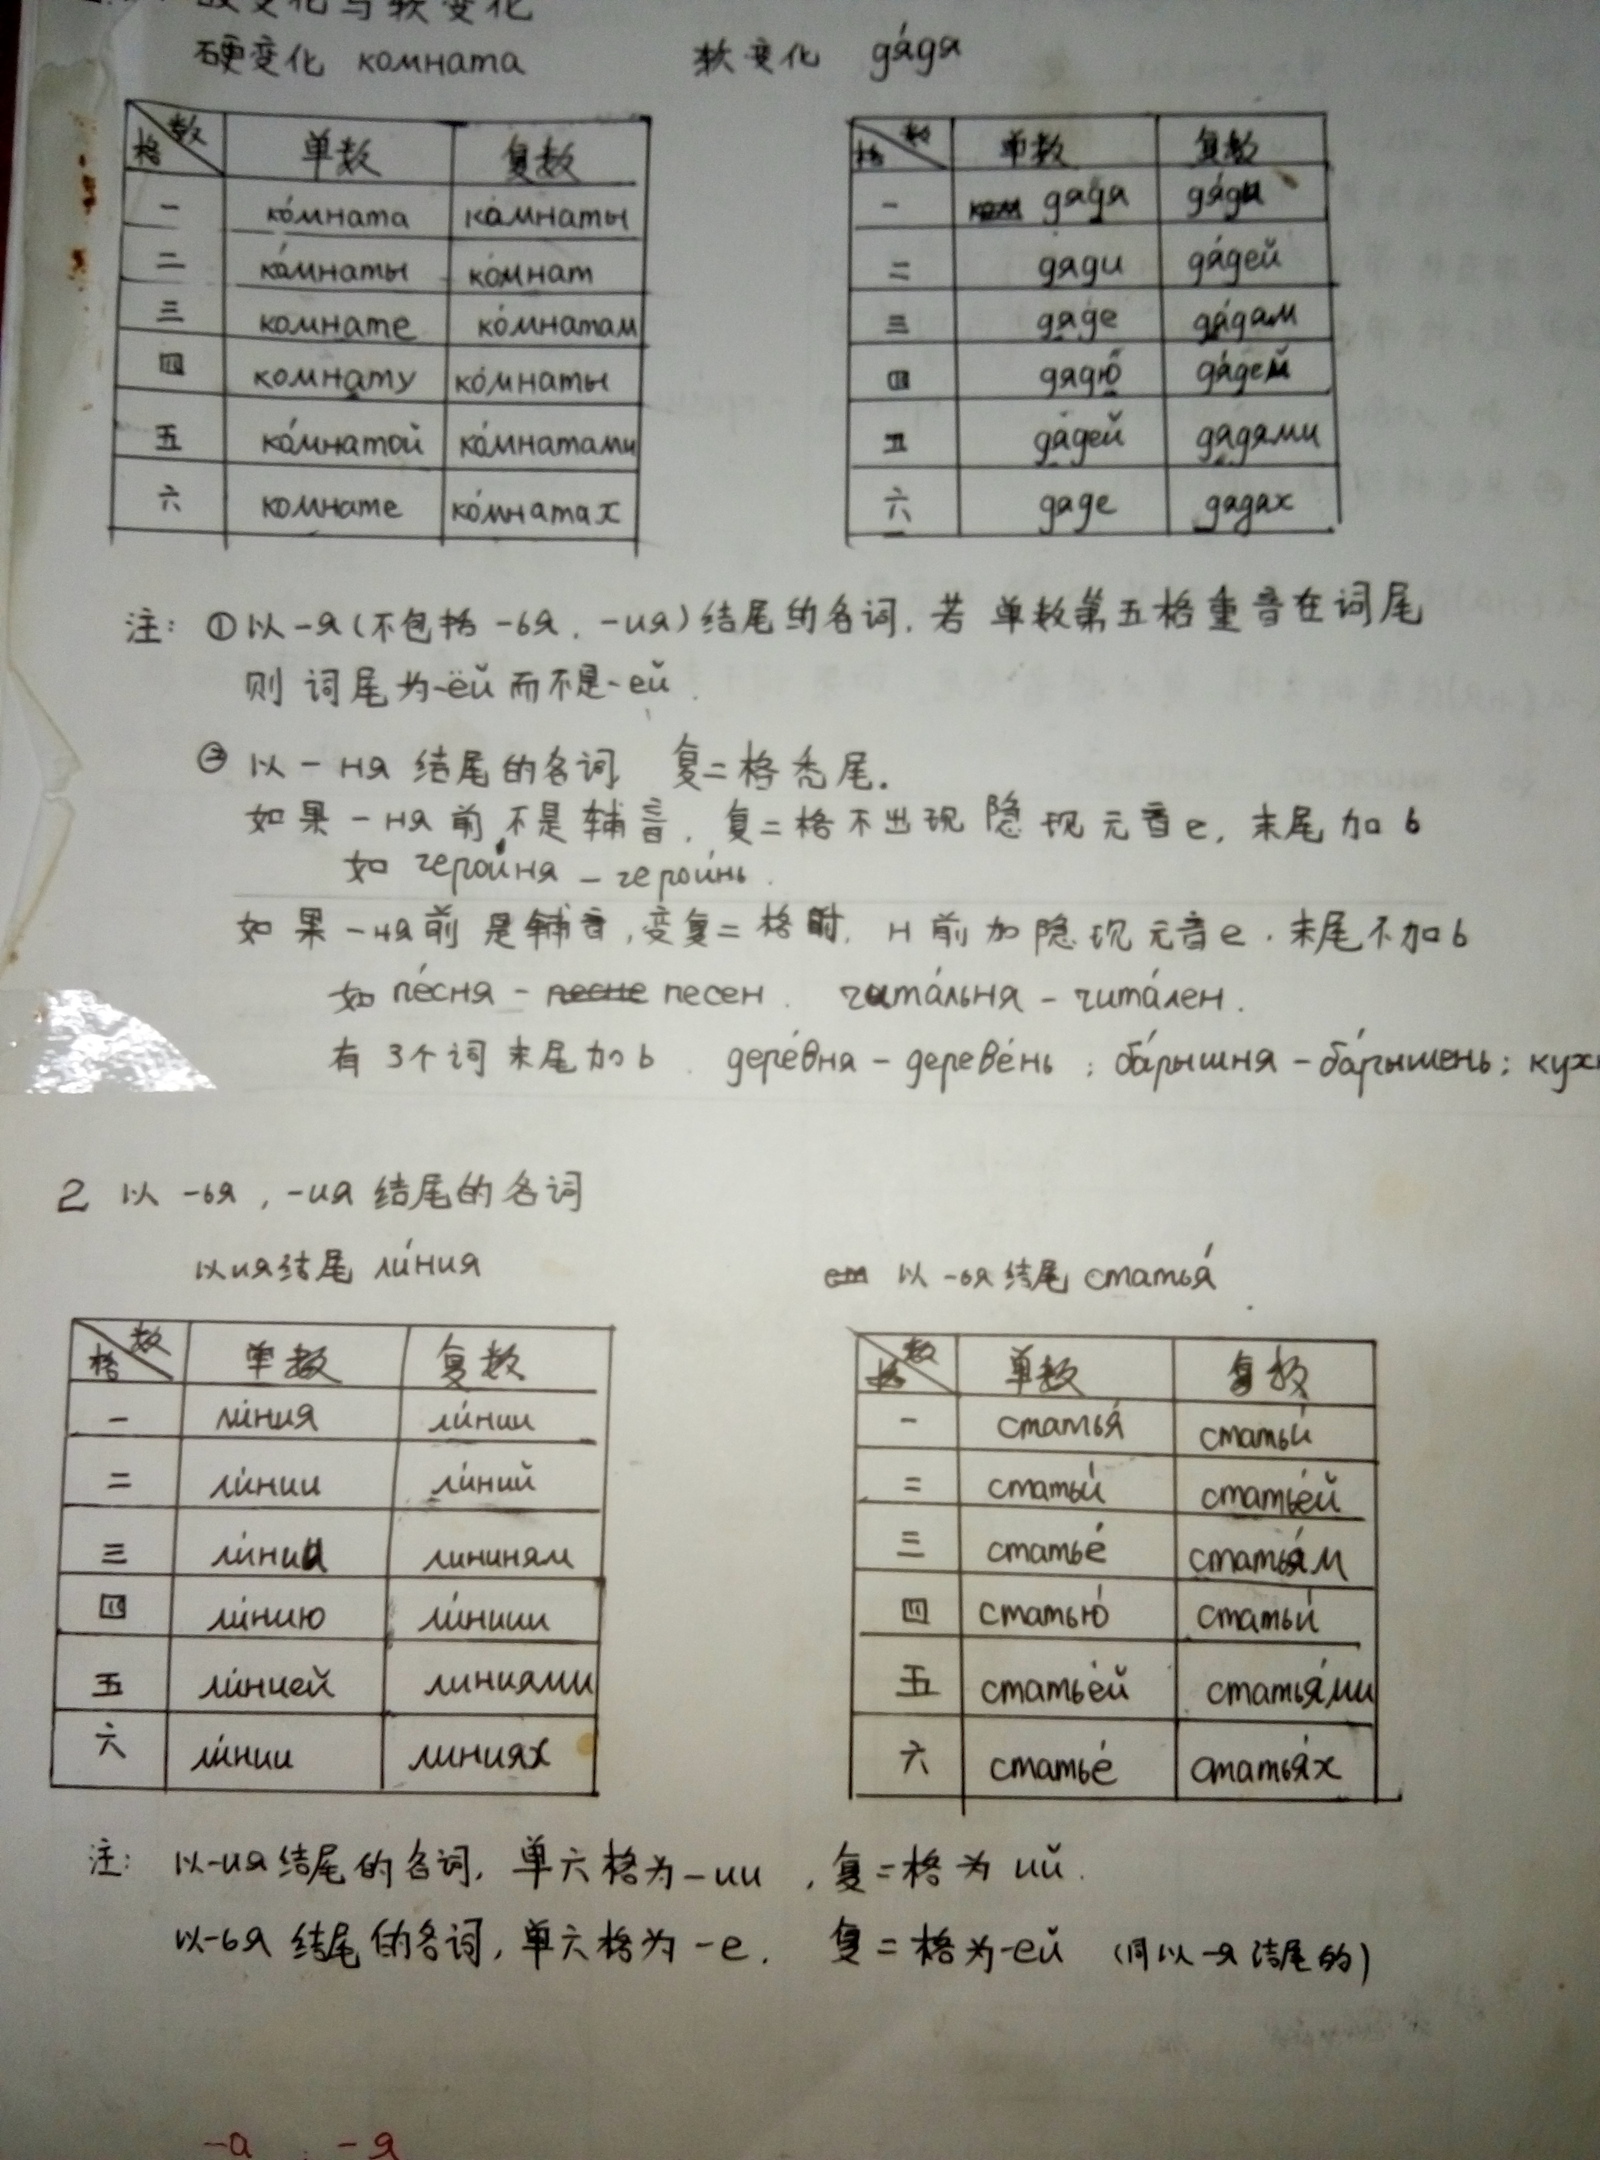 变化与软变化
硬变化 комната 软变化 дя́дя
数 格 单数 复数
一 ко́мната ко́мнаты
二 ко́мнаты ко́мнат
三 комнате ко́мнатам
四 комнату ко́мнаты
五 ко́мнатой ко́мнатами
六 комнате ко́мнатах
数 格 单数 复数
一 дядя дя́ди
二 дяди дя́дей
三 дяде дя́дям
四 дядю дя́дей
五 дя́дей дядями
六 дяде дядах
注: ①以-я(不包括 -ья, -ия)结尾的名词, 若 单数第五格重音在词尾
则 词尾为-ёй 而不是-ей.
② 以 -ня 结尾的名词 复二格秃尾.
如果 -ня 前 不是辅音, 复二格不出现 隐现元音е, 末尾加 ь
如 герои́ня - герои́нь.
如果 -ня前 是辅音, 变复二格时, н 前加隐现元音е. 末尾不加ь
如 пе́сня - песен. чита́льня - чита́лен.
有 3个词 末尾加ь. дере́вня - дереве́нь; ба́рышня - ба́рышень; кух
2 以 -ья, -ия 结尾的名词
以ия结尾 ли́ния 以 -ья 结尾 статья́
数 格 单数 复数
一 ли́ния ли́нии
二 ли́нии ли́ний
三 ли́нии лининям
四 ли́нию ли́ниии
五 ли́нией линиями
六 ли́нии линиях
数 格 单数 复数
一 статья́ статьи́
二 статьи́ статье́й
三 статье́ статья́м
四 статью́ статьи́
五 статье́й статья́ми
六 статье́ статья́х
注: 以-ия结尾的名词, 单六格为-ии, 复二格为 ий.
以-ья 结尾的名词, 单六格为 -е. 复二格为-ей (同以-я结尾的)
-а, -я